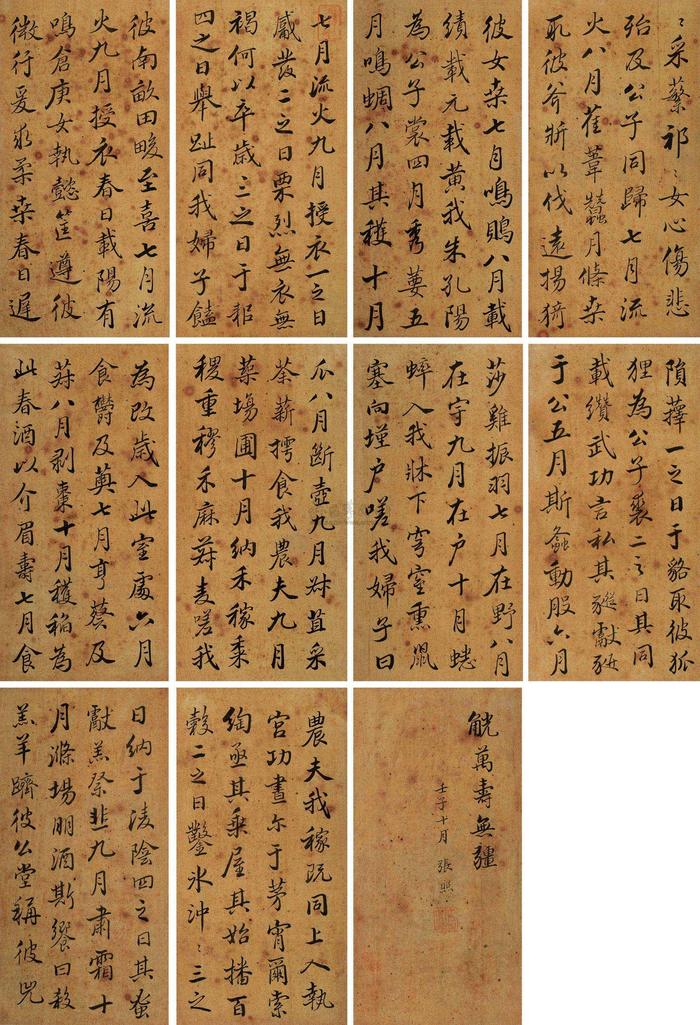 七月流火九月授衣一之日
觱發二之日栗烈無衣無
褐何以卒歲三之日于耜
四之日舉趾同我婦子饁
彼南畝田畯至喜七月流
火九月授衣春日載陽有
鳴倉庚女執懿筐遵彼
微行爰求柔桑春日遲
〻采蘩祁〻女心傷悲
殆及公子同歸七月流
火八月萑葦蠶月條桑
取彼斧斨以伐遠揚猗
彼女桑七月鳴鵙八月載
績載元載黃我朱孔陽
為公子裳四月秀葽五
月鳴蜩八月其穫十月
隕蘀一之日于貉取彼狐
狸為公子裘二之日其同
載纘武功言私其豵獻豜
于公五月斯螽動股六月
莎雞振羽七月在野八月
在宇九月在户十月蟋
蟀入我牀下穹窒熏鼠
塞向墐户嗟我婦子曰
為改歲入此室處六月
食鬱及薁七月亨葵及
菽八月剥棗十月穫稻為
此春酒以介眉壽七月食
瓜八月斷壺九月菽苴采
荼薪樗食我農夫九月
築場圃十月納禾稼黍
稷重穋禾麻菽麥嗟我
農夫我稼既同上入執
宮功晝尔于茅宵爾索
綯亟其乘屋其始播百
穀二之日鑿氷沖〻三之
日納于凌陰四之日其蚤
獻羔祭韭九月肅霜十
月滌場朋酒斯饗曰殺
羔羊躋彼公堂稱彼兕
觥萬壽無疆
壬子十月 張照